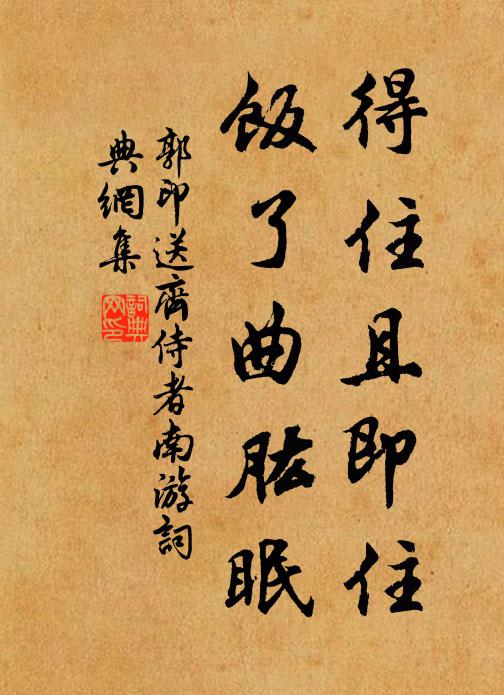 得住且即住
飯了曲肱眠
郭印送齊侍者南游詞
典網集
詞典
网印